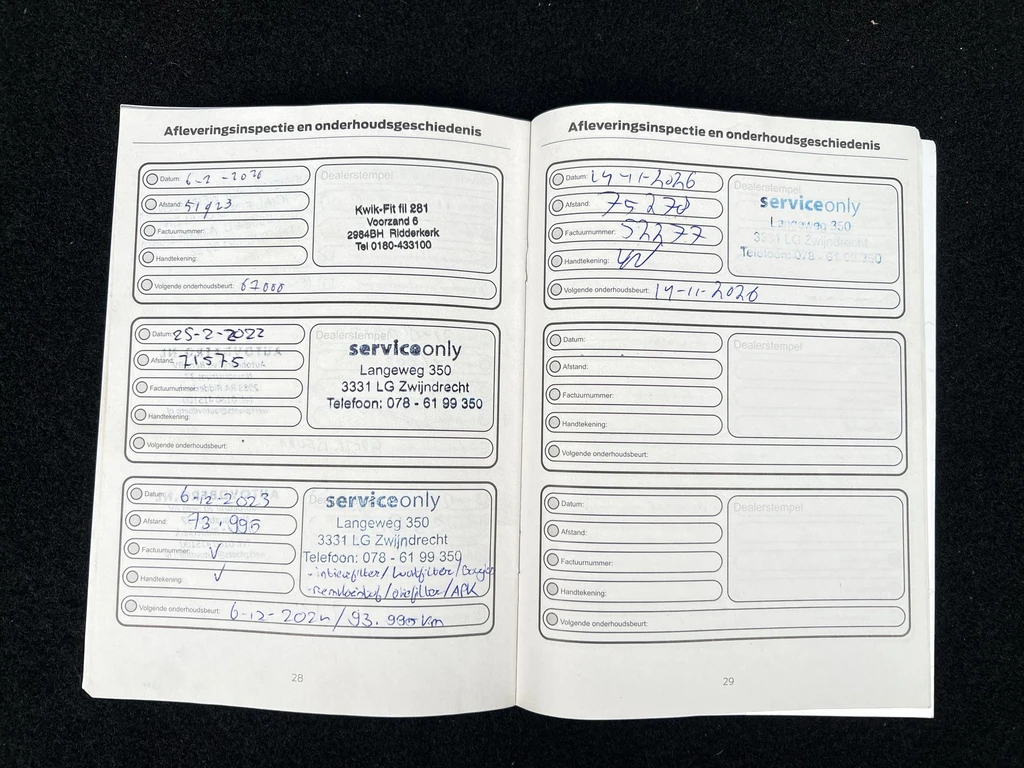 Afleveringsinspectie en onderhoudsgeschiedenis
Datum:
Dealerstempel
Afstand: 51923
Kwik-Fit fil 281
Voorzand 6
2984BH Ridderkerk
Tel 0180-433100
Factuurnummer:
Handtekening:
Volgende onderhoudsbeurt: 67000
Datum: 25-2-2022
Dealerstempel
Afstand: 71575
serviceonly
Langeweg 350
3331 LG Zwijndrecht
Telefoon: 078 - 61 99 350
Factuurnummer:
Handtekening:
Volgende onderhoudsbeurt:
Datum: 6-12-2023
Afstand: 73.995
serviceonly
Langeweg 350
3331 LG Zwijndrecht
Telefoon: 078 - 61 99 350
Factuurnummer: ✓
Handtekening: ✓
- interieurfilter/luchtfilter/
- remvloeistof/oliefilter/APK
Volgende onderhoudsbeurt: 6-12-2024/93.995 km
28
Afleveringsinspectie en onderhoudsgeschiedenis
Datum: 14-11-2026
Dealerstempel
Afstand: 75278
serviceonly
Langeweg 350
3331 LG Zwijndrecht
Telefoon: 078 - 61 99 350
Factuurnummer: 52277
Handtekening:
Volgende onderhoudsbeurt: 14-11-2026
Datum:
Dealerstempel
Afstand:
Factuurnummer:
Handtekening:
Volgende onderhoudsbeurt:
Datum:
Dealerstempel
Afstand:
Factuurnummer:
Handtekening:
Volgende onderhoudsbeurt:
29